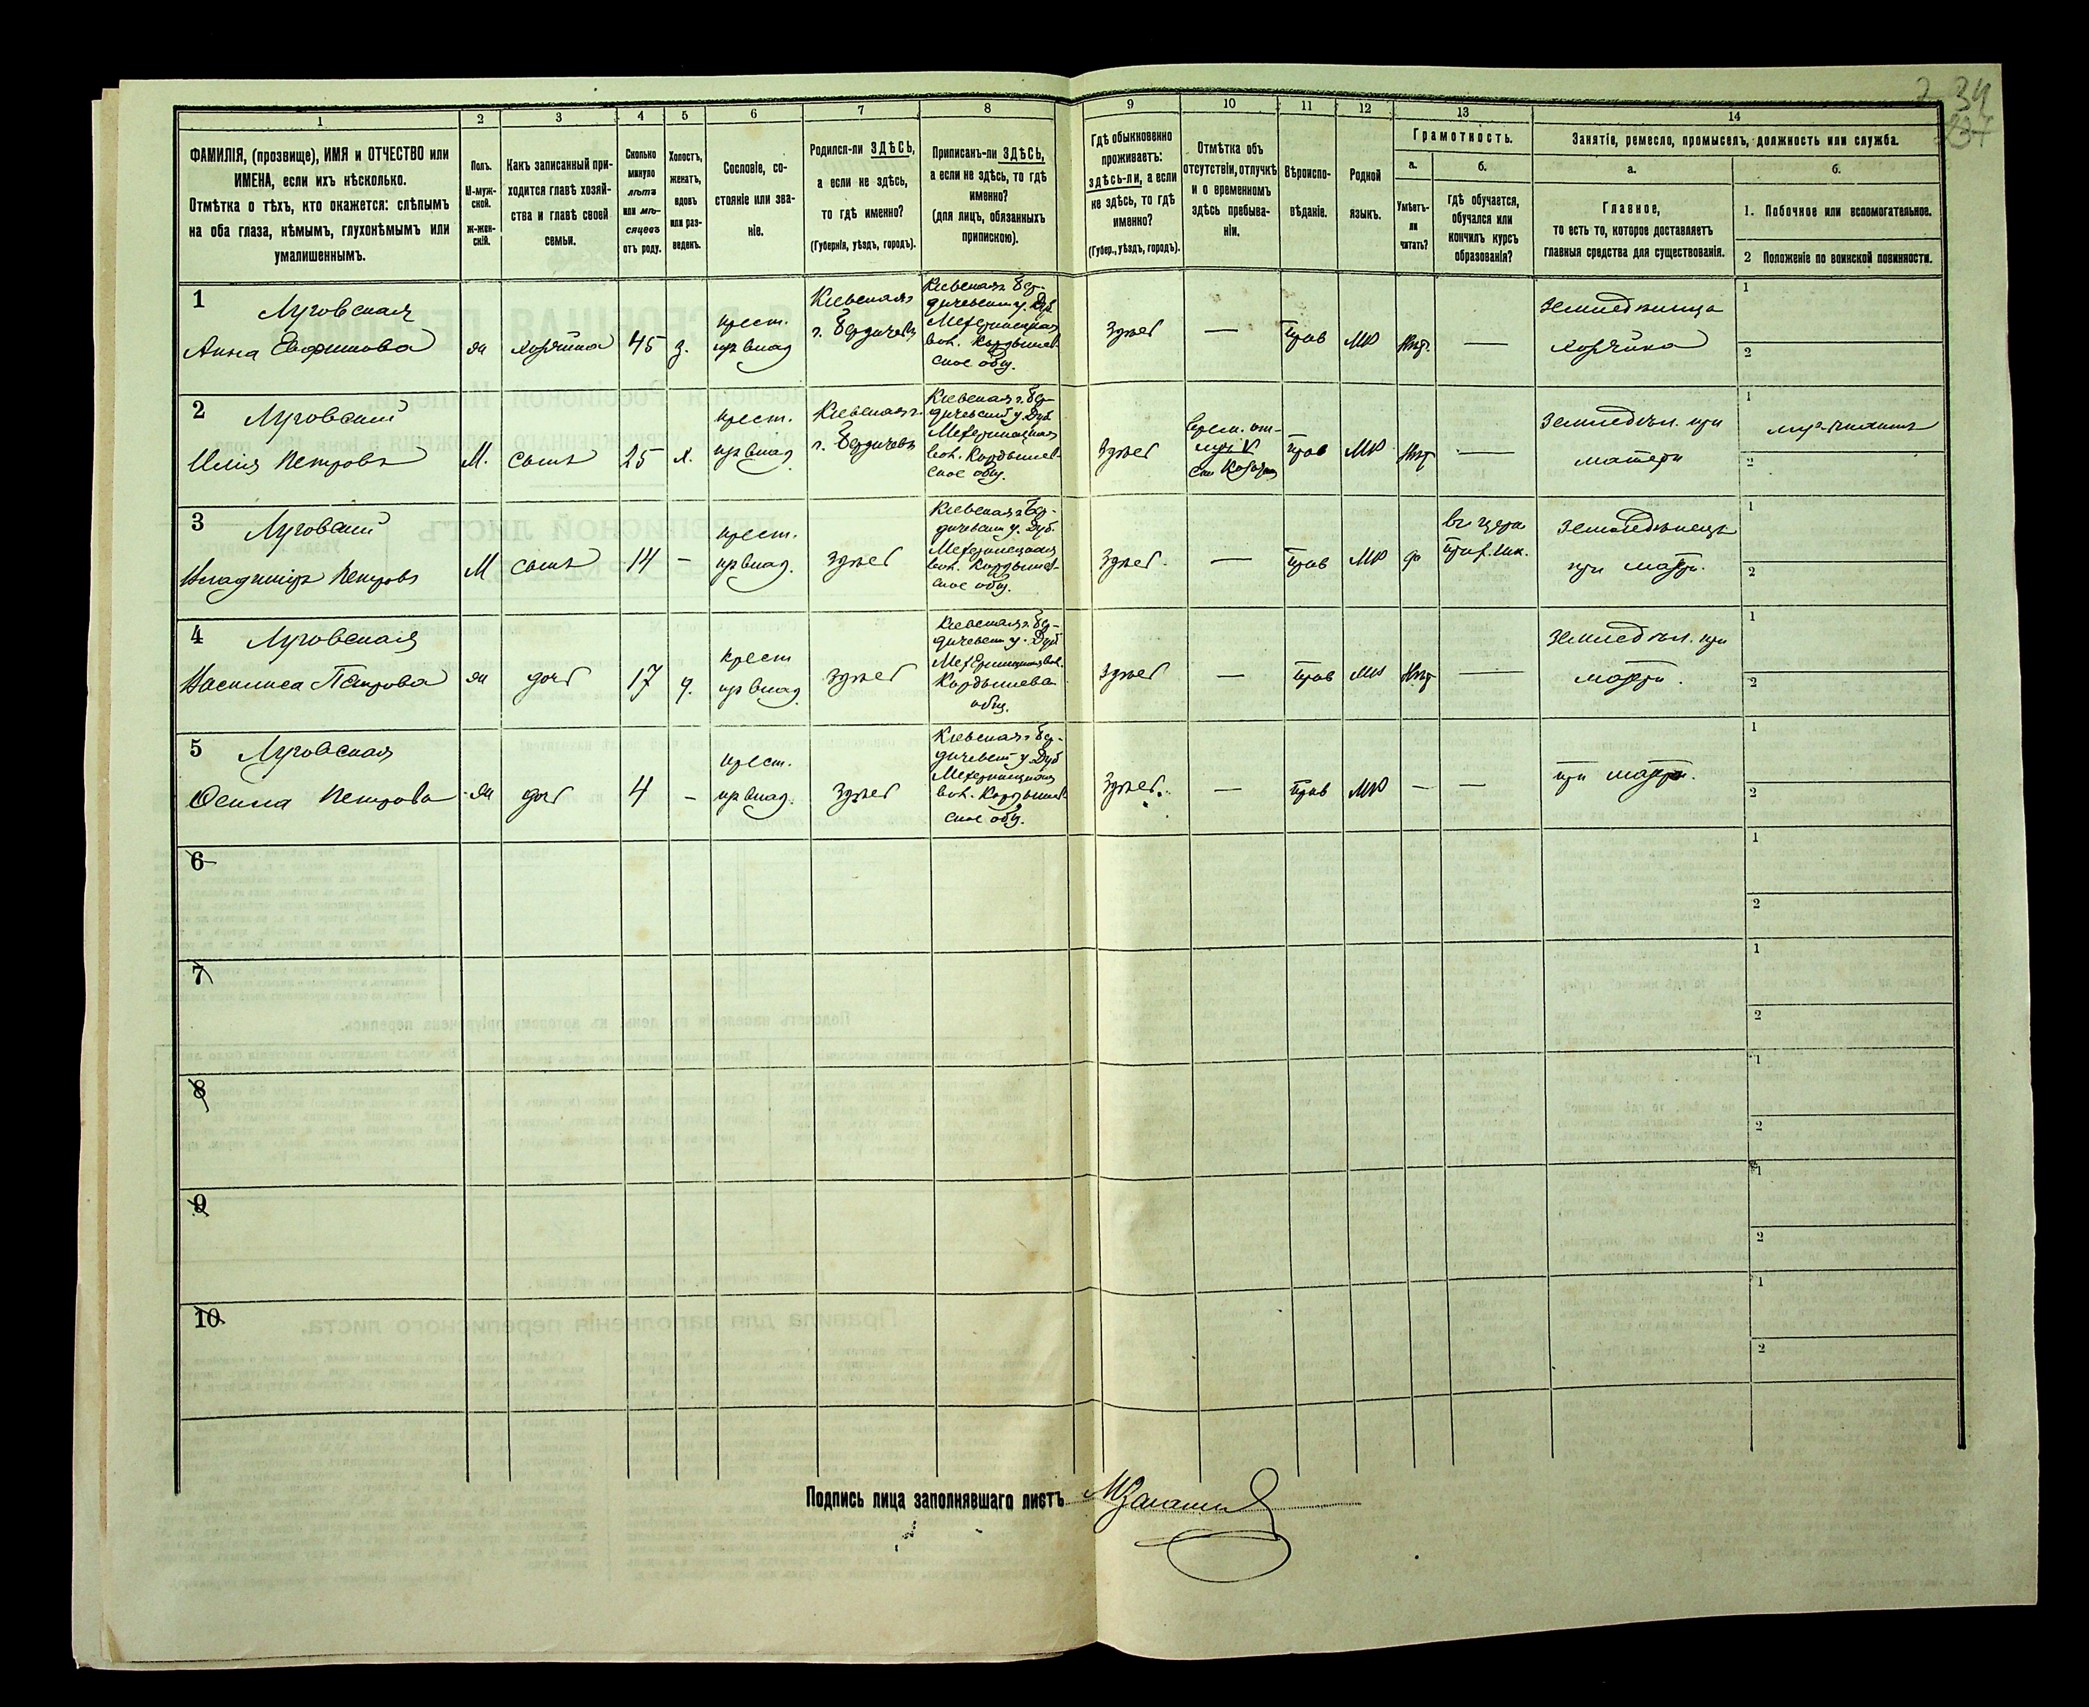 34
237
1
2
3
4
5
6
7
8
9
10
11
12
13
14
ФАМИЛІЯ, (прозвище), ИМЯ и ОТЧЕСТВО или
ИМЕНА, если ихъ нѣсколько.
Отмѣтка о тѣхъ, кто окажется: слѣпымъ
на оба глаза, нѣмымъ, глухонѣмымъ или
умалишеннымъ.
Полъ.
М-муж-
ской.
Ж-жен-
скій.
Какъ записанный при-
ходится главѣ хозяй-
ства и главѣ своей
семьи.
Сколько
минуло
лѣтъ
или мѣ-
сяцевъ
отъ роду.
Холостъ,
женатъ,
вдовъ
или раз-
веденъ.
Сословіе, со-
стояніе или зва-
ніе.
Родился-ли ЗДѢСЬ,
а если не здѣсь,
то гдѣ именно?
(Губернія, уѣздъ, городъ).
Приписанъ-ли ЗДѢСЬ,
а если не здѣсь, то гдѣ
именно?
(для лицъ, обязанныхъ
припискою).
Гдѣ обыкновенно
проживаетъ:
здѣсь-ли, а если
не здѣсь, то гдѣ
именно?
(Губер., уѣздъ, городъ).
Отмѣтка объ
отсутствіи, отлучкѣ
и о временномъ
здѣсь пребыва-
ніи.
Вѣроиспо-
вѣданіе.
Родной
языкъ.
Грамотность.
а.
Умѣетъ-
ли
читать?
б.
Гдѣ обучается,
обучался или
кончилъ курсъ
образованія?
Занятіе, ремесло, промыселъ, должность или служба.
а.
Главное,
то есть то, которое доставляетъ
главныя средства для существованія.
б.
1. Побочное или вспомогательное.
2 Положеніе по воинской повинности.
1
Луговская
Анна Евфимова
ж
хозяйка
45
з.
крест.
из влад.
Кіевская г.
г. Бердичевъ
Кіевская г. Бер-
дичевскій у. Дуб.
Мехержинецкая
вол. Кордышев-
ское общ.
здѣсь
—
прав
МР
нѣт.
—
Земледѣлица
хозяйка
1
2
2
Луговскій
Илія Петровъ
М.
сынъ
25
х.
крест.
из влад.
Кіевская г.
г. Бердичевъ
Кіевская г. Бер-
дичевскій у. Дуб.
Мехержинецкая
вол. Кордышев-
ское общ.
здѣсь
прав
МР
нѣт
—
Земледѣл. при
матери
1
2
3
Луговскій
Владиміръ Петровъ
М
сынъ
14
—
крест.
из влад.
здѣсь
Кіевская г. Бер-
дичевскій у. Дуб.
Мехержинецкая
вол. Кордышев-
ское общ.
здѣсь.
—
прав
МР
да
въ церк.
прих. шк.
Земледѣлецъ
при матри.
1
2
4
Луговская
Василиса Петрова
ж
дочь
17
д.
крест
из влад.
здѣсь
Кіевская г. Бер-
дичевскій у. Дуб
Мехержинецкая вол.
Кордышевское
общ.
здѣсь
—
прав
МР
нѣт
—
Земледѣл. при
матри.
1
2
5
Луговская
Ѳекла Петрова
ж
дочь
4
—
крест.
из влад.
здѣсь
Кіевская г. Бер-
дичевскій у. Дуб
Мехержинецкая
вол. Кордышев-
ское общ.
здѣсь.
—
прав
МР
—
—
при матри.
1
2
6
1
2
7
1
2
8
1
2
9
1
2
10
1
2
Подпись лица заполнявшаго листъ